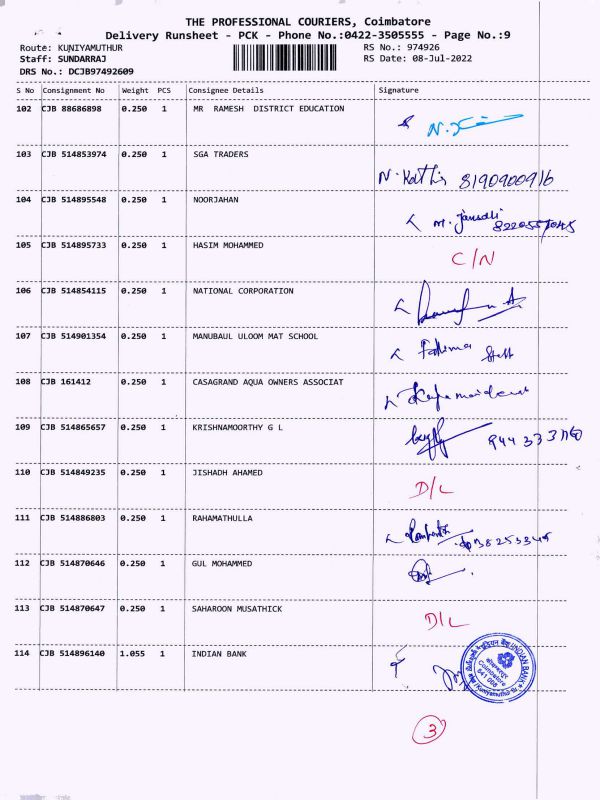 THE PROFESSIONAL COURIERS, Coimbatore
Delivery Runsheet - PCK - Phone No.:0422-3505555 - Page No.:9
Route: KUNIYAMUTHUR RS No.: 974926
Staff: SUNDARRAJ RS Date: 08-Jul-2022
DRS No.: DCJB97492609
S No Consignment No Weight PCS Consignee Details Signature
102 CJB 88686898 0.250 1 MR RAMESH DISTRICT EDUCATION
103 CJB 514853974 0.250 1 SGA TRADERS
8190900916
104 CJB 514895548 0.250 1 NOORJAHAN
105 CJB 514895733 0.250 1 HASIM MOHAMMED
C/N
106 CJB 514854115 0.250 1 NATIONAL CORPORATION
107 CJB 514901354 0.250 1 MANUBAUL ULOOM MAT SCHOOL
Fathima Staff
108 CJB 161412 0.250 1 CASAGRAND AQUA OWNERS ASSOCIAT
109 CJB 514865657 0.250 1 KRISHNAMOORTHY G L
110 CJB 514849235 0.250 1 JISHADH AHAMED
D/L
111 CJB 514886803 0.250 1 RAHAMATHULLA
112 CJB 514870646 0.250 1 GUL MOHAMMED
113 CJB 514870647 0.250 1 SAHAROON MUSATHICK
D/L
114 CJB 514896140 1.055 1 INDIAN BANK
इंडियन बैंक INDIAN BANK
कोयम्बत्तूर
Coimbatore
641 008
(Kuniyamuthur Br.)
3